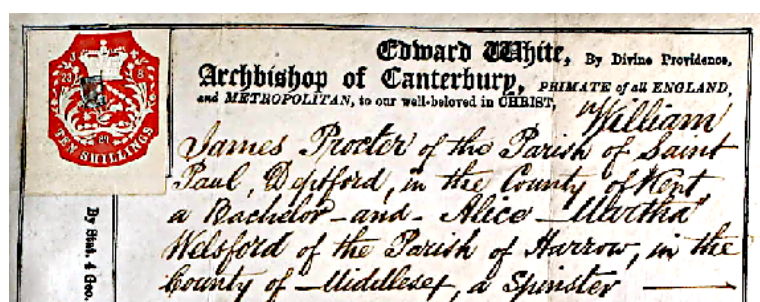 Edward White, By Divine Providence,
Archbishop of Canterbury, PRIMATE of all ENGLAND,
and METROPOLITAN, to our well-beloved in CHRIST, William
James Procter of the Parish of Saint
Paul, Deptford, in the County of Kent,
a Bachelor and Alice Martha
Welsford of the Parish of Harrow, in the
County of Middlesex, a Spinster
TEN SHILLINGS
By Stat. 4 Geo.